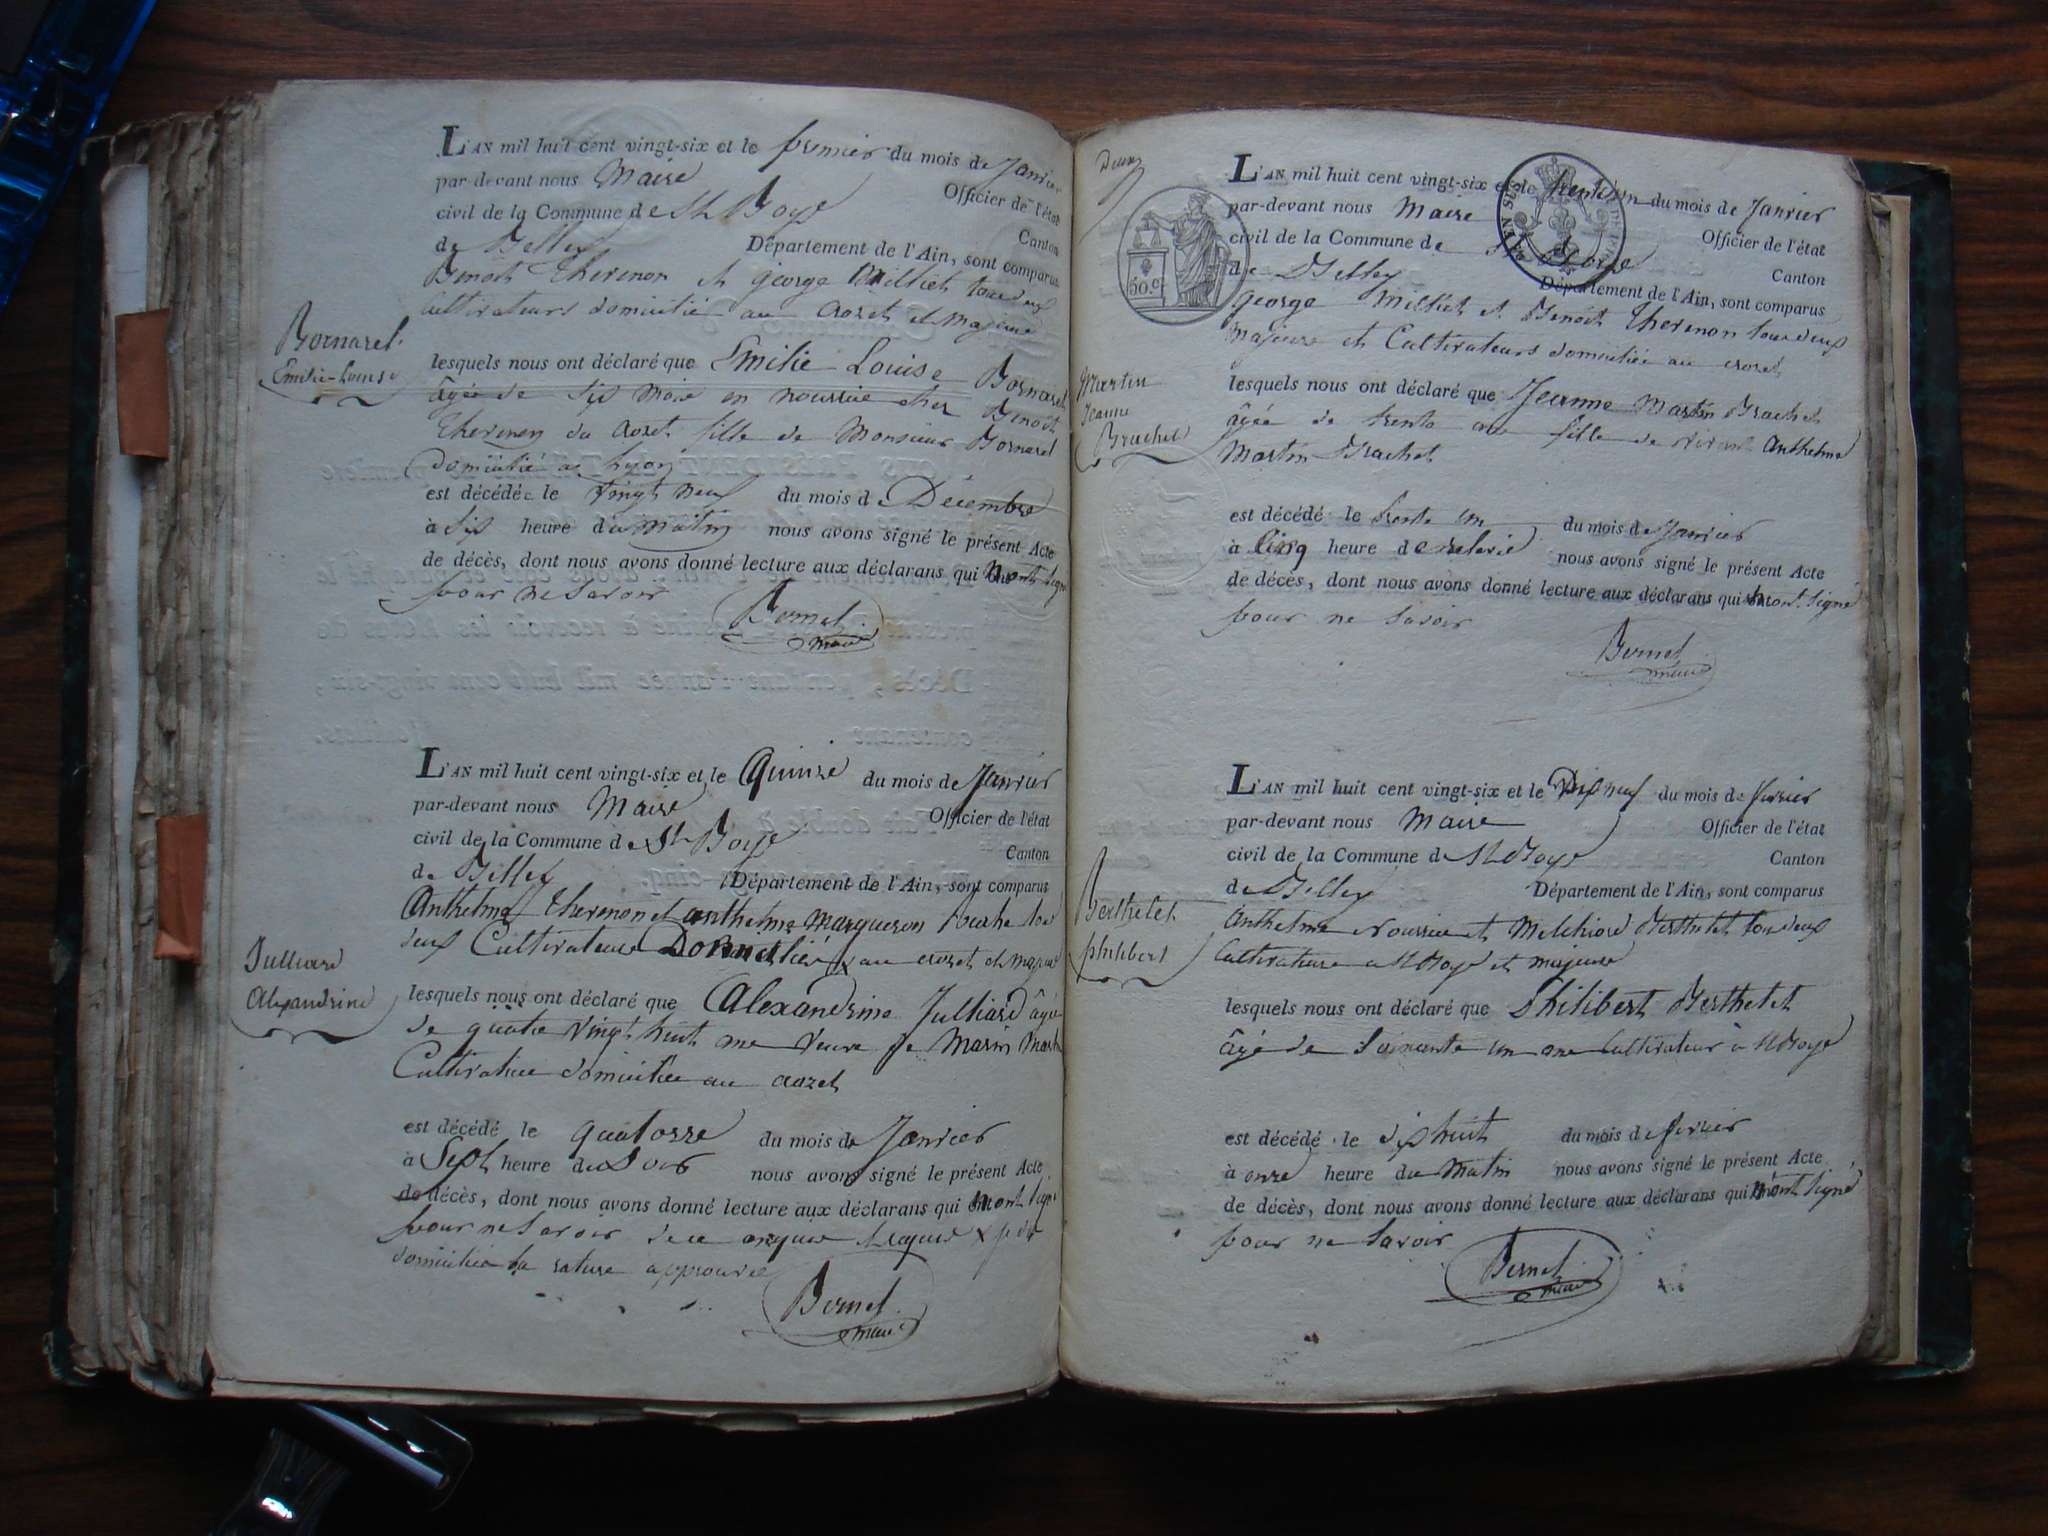 L'AN mil huit cent vingt-six et le premier du mois de Janvier
par-devant nous Maire Officier de l'état
civil de la Commune de St Boys Canton
de Belley Département de l'Ain, sont comparus
Benoit Thevenon et george Milliet tous deux
Cultivateurs domicilié au crozet et majeurs
Bornarel
Emilie-Louise
lesquels nous ont déclaré que Emilie Louise Bornarel
âgée de six mois en nourrice chez Benoit
Thevenon du crozet fille de Monsieur Bornarel
domicilié a Lyon
est décédée le vingt neuf du mois de Décembre
à six heure du matin nous avons signé le présent Acte
de décès, dont nous avons donné lecture aux déclarans qui n'ont signé
pour ne Savoir
Bernel
maire
L'AN mil huit cent vingt-six et le Quinze du mois de Janvier
par-devant nous Maire Officier de l'état
civil de la Commune de St Boys Canton
de Belley Département de l'Ain, sont comparus
Anthelme Thevenon et anthelme marqueron tous
deux Cultivateurs Domicilié x au crozet et majeurs
Julliard
Alexandrine
lesquels nous ont déclaré que Alexandrine Julliard âgée
de quatre vingt huit ans veuve de Marin Martin
Cultivatrice domiciliée au crozet
est décédé le quatorze du mois de Janvier
à Sept heure du Soir nous avons signé le présent Acte
de décès, dont nous avons donné lecture aux déclarans qui n'ont signé
pour ne Savoir de ce enquis requis x
domicilié la rature approuvée
Bernel
maire
Deux
60.c
L'AN mil huit cent vingt-six et le trente un du mois de Janvier
par-devant nous Maire Officier de l'état
civil de la Commune de St Boys Canton
de Belley Département de l'Ain, sont comparus
george Milliet et Benoit Thevenon tous deux
majeurs et Cultivateurs domicilié au crozet
Martin
Jeanne
Brachet
lesquels nous ont déclaré que Jeanne Martin Brachet
âgée de trente ans fille de vivant Anthelme
Martin Brachet
est décédé le trente un du mois de Janvier
à Cinq heure de relevée nous avons signé le présent Acte
de décès, dont nous avons donné lecture aux déclarans qui n'ont signé
pour ne Savoir
Bernel
maire
L'AN mil huit cent vingt-six et le Dix neuf du mois de fevrier
par-devant nous Maire Officier de l'état
civil de la Commune de St Boys Canton
de Belley Département de l'Ain, sont comparus
Anthelme et Melchiord Berthelet tous deux
Cultivateurs a St Boys et majeurs
Berthelet
philibert
lesquels nous ont déclaré que Philibert Berthelet
âgé de Soixante un ans Cultivateur à St Boys
est décédé le dix huit du mois de fevrier
à onze heure du Matin nous avons signé le présent Acte
de décès, dont nous avons donné lecture aux déclarans qui n'ont Signé
pour ne Savoir
Bernel
maire